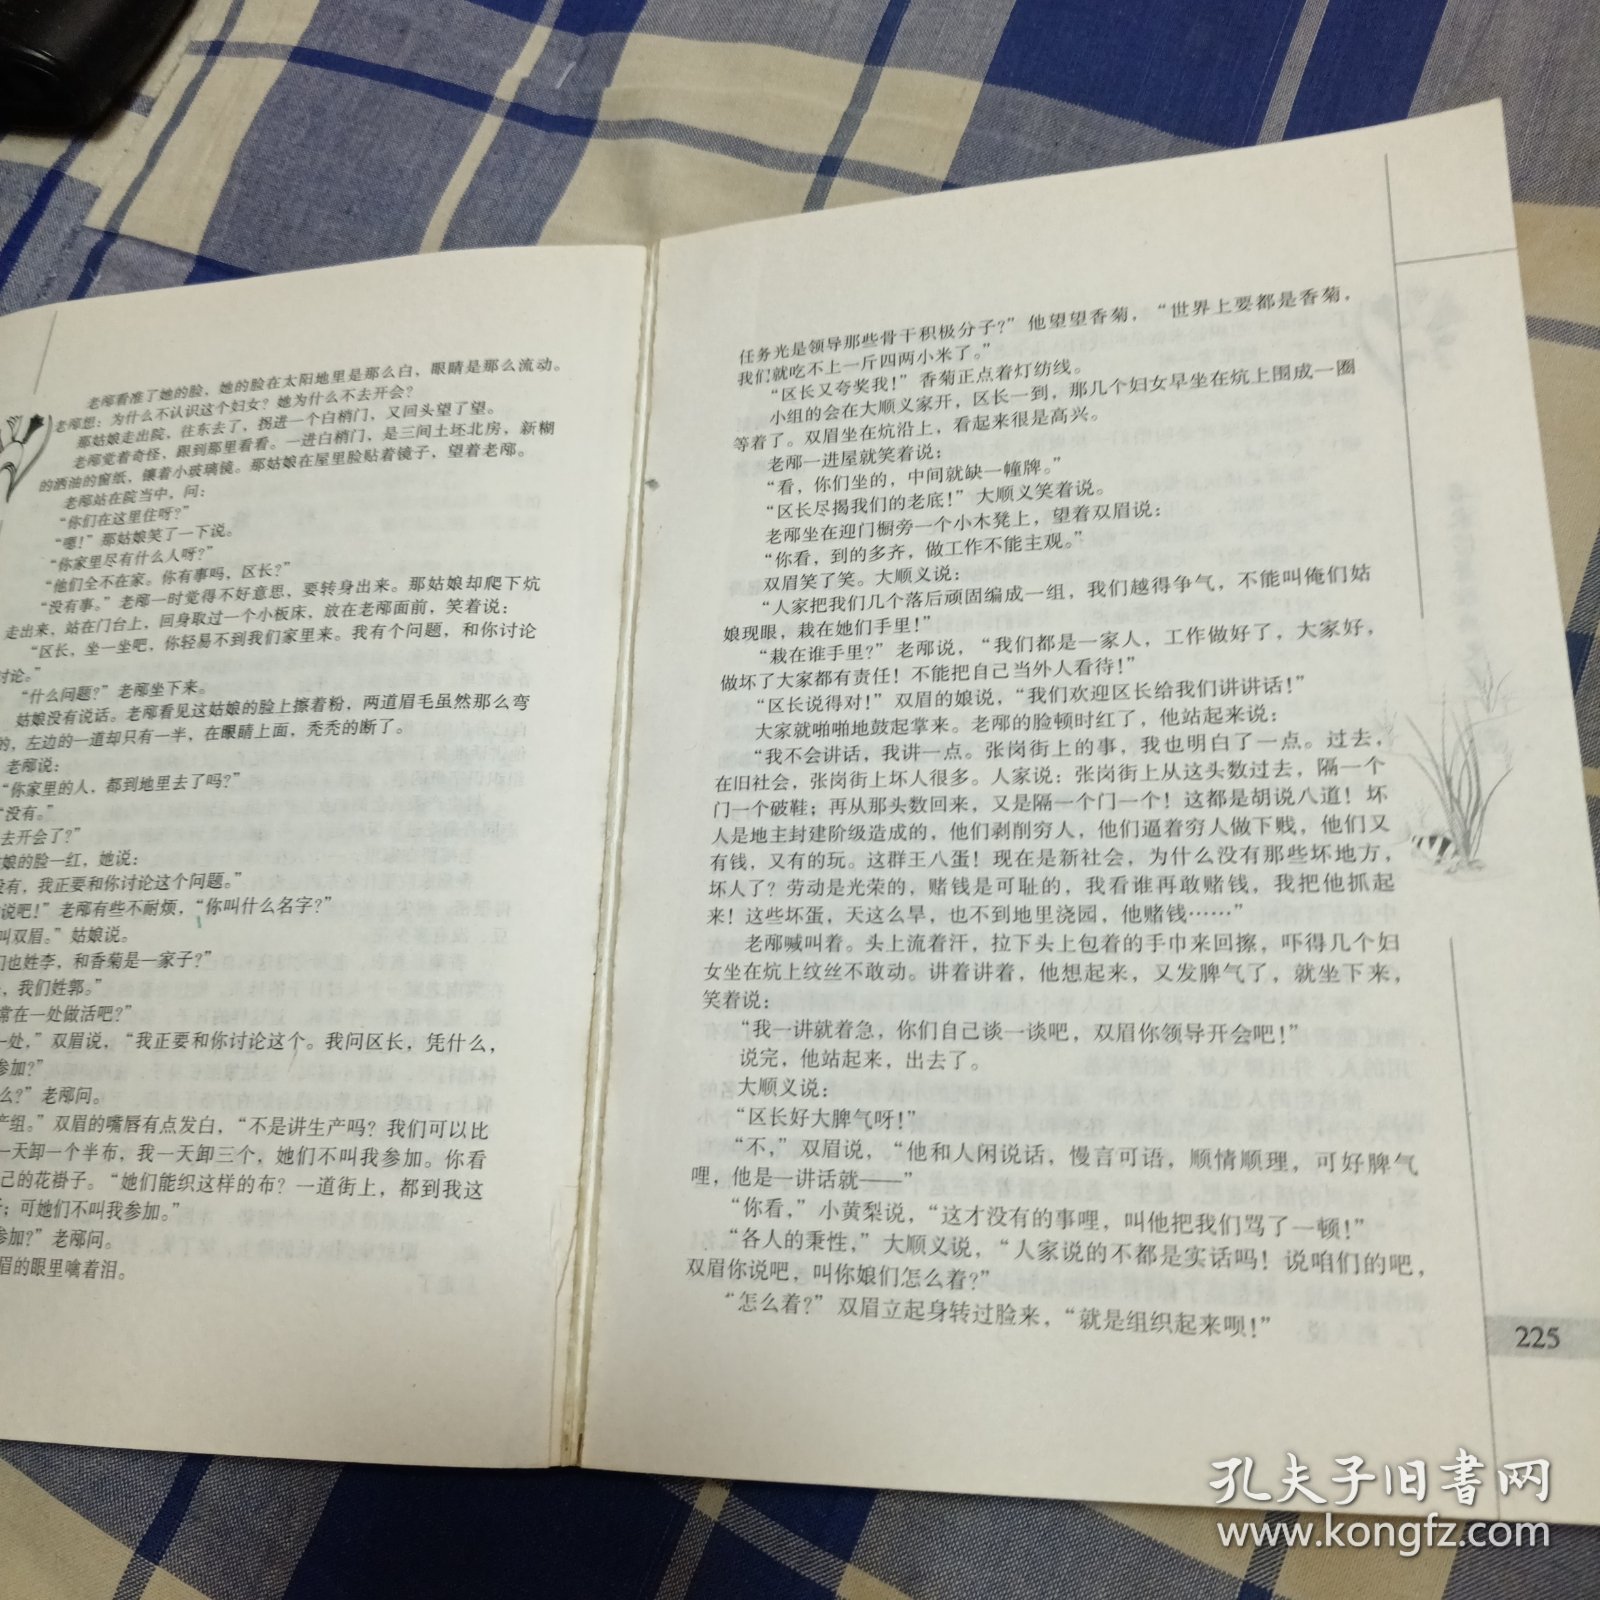 老邴看准了她的脸，她的脸在太阳地里是那么白，眼睛是那么流动。
老邴想：为什么不认识这个妇女？她为什么不去开会？
那姑娘走出院，往东去了，拐进一个白梢门，又回头望了望。
老邴觉着奇怪，跟到那里看看。一进白梢门，是三间土坯北房，新糊
的洒油的窗纸，镶着小玻璃镜。那姑娘在屋里脸贴着镜子，望着老邴。
老邴站在院当中，问：
“你们在这里住呀？”
“嗯！”那姑娘笑了一下说。
“你家里尽有什么人呀？”
“他们全不在家。你有事吗，区长？”
“没有事。”老邴一时觉得不好意思，要转身出来。那姑娘却爬下炕
走出来，站在门台上，回身取过一个小板床，放在老邴面前，笑着说：
“区长，坐一坐吧，你轻易不到我们家里来。我有个问题，和你讨论
讨论。”
“什么问题？”老邴坐下来。
姑娘没有说话。老邴看见这姑娘的脸上擦着粉，两道眉毛虽然那么弯
的，左边的一道却只有一半，在眼睛上面，秃秃的断了。
老邴说：
“你家里的人，都到地里去了吗？”
“没有。”
去开会了？”
娘的脸一红，她说：
没有，我正要和你讨论这个问题。”
说吧！”老邴有些不耐烦，“你叫什么名字？”
叫双眉。”姑娘说。
们也姓李，和香菊是一家子？”
，我们姓郭。”
常在一处做活吧？”
一处，”双眉说，“我正要和你讨论这个。我问区长，凭什么，
参加？”
么？”老邴问。
产组。”双眉的嘴唇有点发白，“不是讲生产吗？我们可以比
一天卸一个半布，我一天卸三个，她们不叫我参加。你看
己的花褂子。“她们能织这样的布？一道街上，都到我这
；可她们不叫我参加。”
参加？”老邴问。
眉的眼里噙着泪。
任务光是领导那些骨干积极分子？”他望望香菊，“世界上要都是香菊，
我们就吃不上一斤四两小米了。”
“区长又夸奖我！”香菊正点着灯纺线。
小组的会在大顺义家开，区长一到，那几个妇女早坐在炕上围成一圈
等着了。双眉坐在炕沿上，看起来很是高兴。
老邴一进屋就笑着说：
“看，你们坐的，中间就缺一幢牌。”
“区长尽揭我们的老底！”大顺义笑着说。
老邴坐在迎门橱旁一个小木凳上，望着双眉说：
“你看，到的多齐，做工作不能主观。”
双眉笑了笑。大顺义说：
“人家把我们几个落后顽固编成一组，我们越得争气，不能叫俺们姑
娘现眼，栽在她们手里！”
“栽在谁手里？”老邴说，“我们都是一家人，工作做好了，大家好，
做坏了大家都有责任！不能把自己当外人看待！”
“区长说得对！”双眉的娘说，“我们欢迎区长给我们讲讲话！”
大家就啪啪地鼓起掌来。老邴的脸顿时红了，他站起来说：
“我不会讲话，我讲一点。张岗街上的事，我也明白了一点。过去，
在旧社会，张岗街上坏人很多。人家说：张岗街上从这头数过去，隔一个
门一个破鞋；再从那头数回来，又是隔一个门一个！这都是胡说八道！坏
人是地主封建阶级造成的，他们剥削穷人，他们逼着穷人做下贱，他们又
有钱，又有的玩。这群王八蛋！现在是新社会，为什么没有那些坏地方，
坏人了？劳动是光荣的，赌钱是可耻的，我看谁再敢赌钱，我把他抓起
来！这些坏蛋，天这么旱，也不到地里浇园，他赌钱……”
老邴喊叫着。头上流着汗，拉下头上包着的手巾来回擦，吓得几个妇
女坐在炕上纹丝不敢动。讲着讲着，他想起来，又发脾气了，就坐下来，
笑着说：
“我一讲就着急，你们自己谈一谈吧，双眉你领导开会吧！”
说完，他站起来，出去了。
大顺义说：
“区长好大脾气呀！”
“不，”双眉说，“他和人闲说话，慢言可语，顺情顺理，可好脾气
哩，他是一讲话就——”
“你看，”小黄梨说，“这才没有的事哩，叫他把我们骂了一顿！”
“各人的秉性，”大顺义说，“人家说的不都是实话吗！说咱们的吧，
双眉你说吧，叫你娘们怎么着？”
“怎么着？”双眉立起身转过脸来，“就是组织起来呗！”
225
孔夫子旧书网
www.kongfz.com